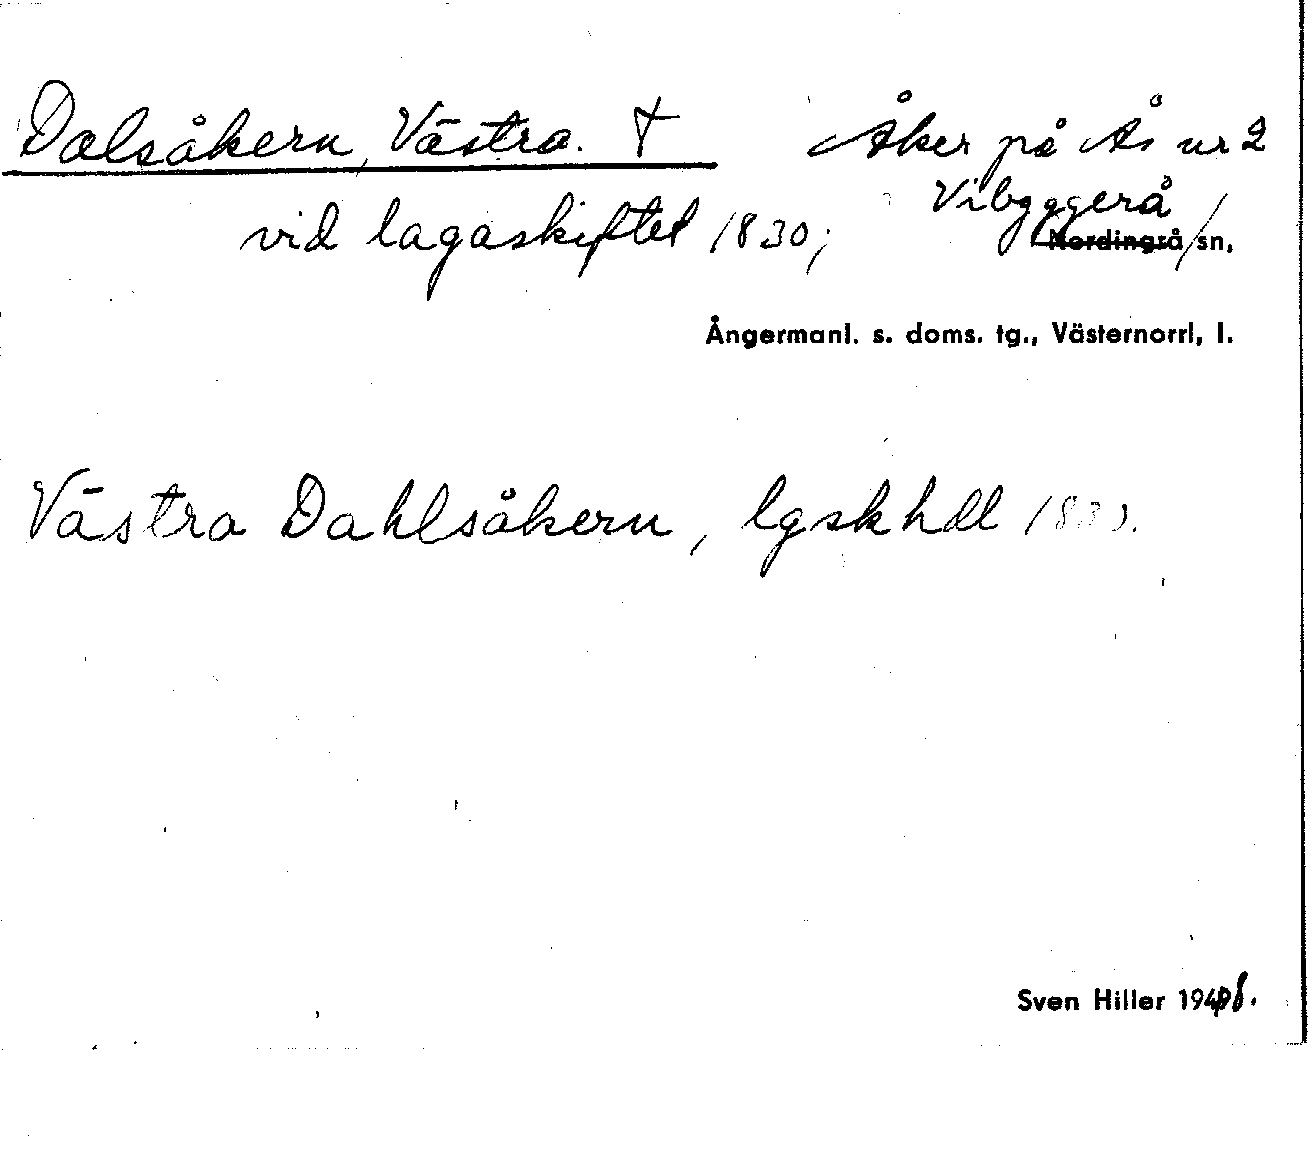 Dalsåkern, Västra. † Åker på Ås nr 2
vid lagaskiftet 1830; Vibyggerå
Nordingrå sn,
Ångermanl. s. doms. tg., Västernorrl, l.
Västra Dahlsåkern, lgskhdl 1830.
Sven Hiller 1948.